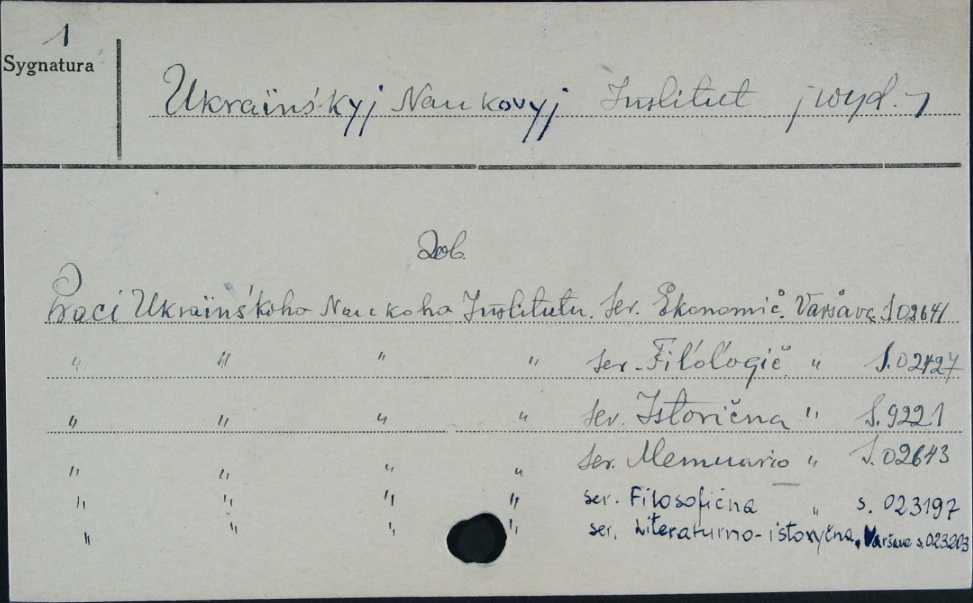 1
Sygnatura
Ukraïnśkyj Naukovyj Institut /wyd./
Zob.
Praci Ukraïnśkoho Naukoho Institutu. Ser. Ekonomič. Varšava S.02641
" " " " ser. Fil'ol'ogič " S.02427
" " " " ser. Istorična " S.9221
" " " " ser. Memuario " S.02643
" " " " ser. Filosofična " s. 023197
" " " " ser. Literaturno-istoryčna, Varšava s.023203